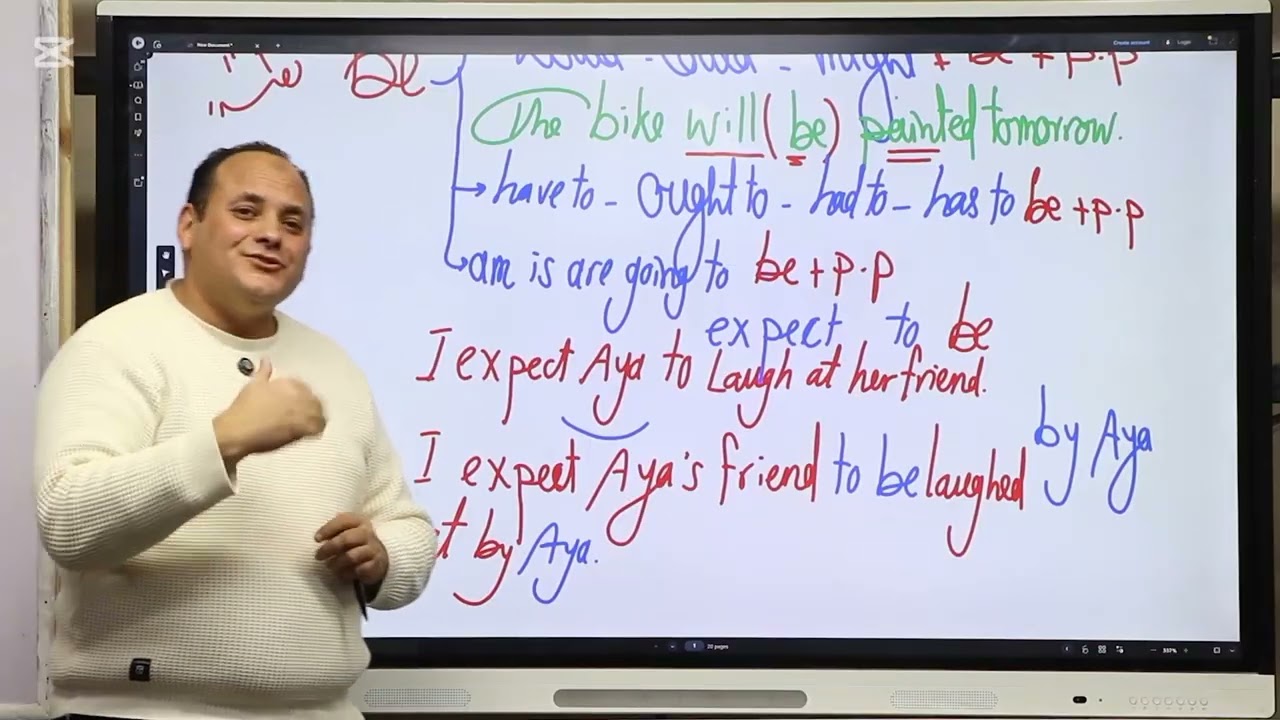 New Document*
Create account
Login
be would - could - might + be + p.p
The bike will (be) painted tomorrow.
have to - ought to - had to - has to be + p.p
am is are going to be + p.p
expect to be
I expect Aya to Laugh at her friend.
I expect Aya's friend to be laughed by Aya
at by Aya.
1 20 pages
337%